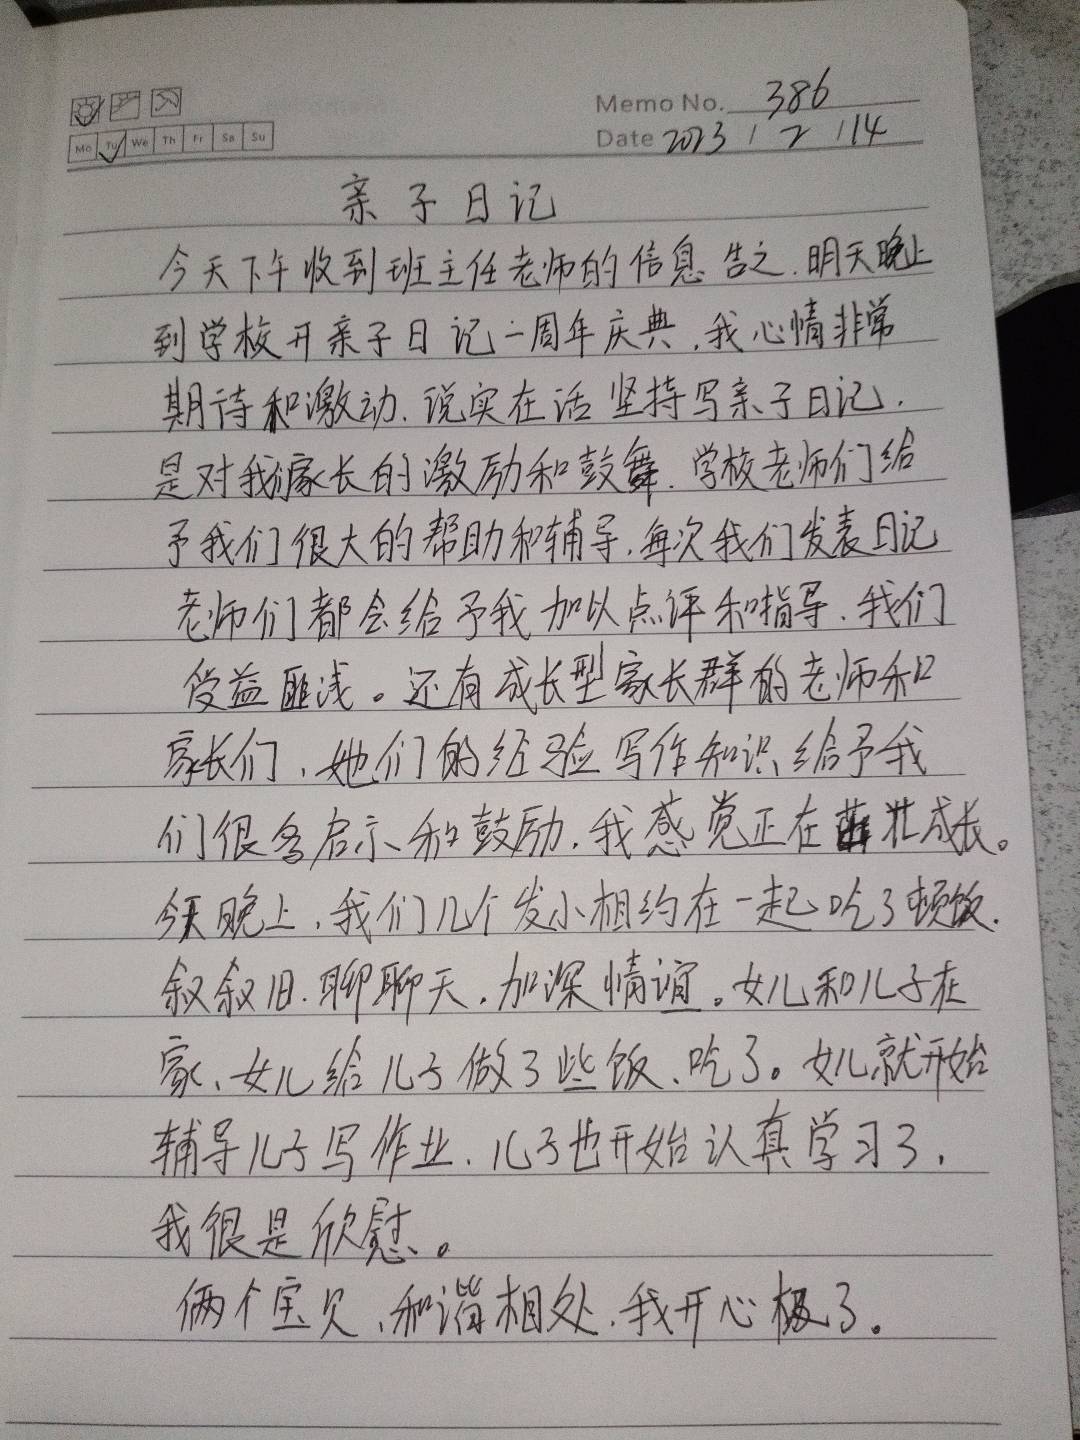 Memo No. 386
Mo Tu We Th Fr Sa Su
Date 2023 / 2 / 14
亲子日记
今天下午收到班主任老师的信息告之,明天晚上
到学校开亲子日记一周年庆典,我心情非常
期待和激动.说实在话坚持写亲子日记,
是对我们家长的激励和鼓舞.学校老师们给
予我们很大的帮助和辅导,每次我们发表日记
老师们都会给予我加以点评和指导,我们
受益匪浅。还有成长型家长群的老师和
家长们,她们的经验写作知识给予我
们很多启示和鼓励,我感觉正在茁壮成长。
今天晚上,我们几个发小相约在一起吃了顿饭.
叙叙旧.聊聊天,加深情谊。女儿和儿子在
家、女儿给儿子做了些饭、吃了。女儿就开始
辅导儿子写作业、儿子也开始认真学习了,
我很是欣慰。
俩个宝贝、和谐相处,我开心极了。